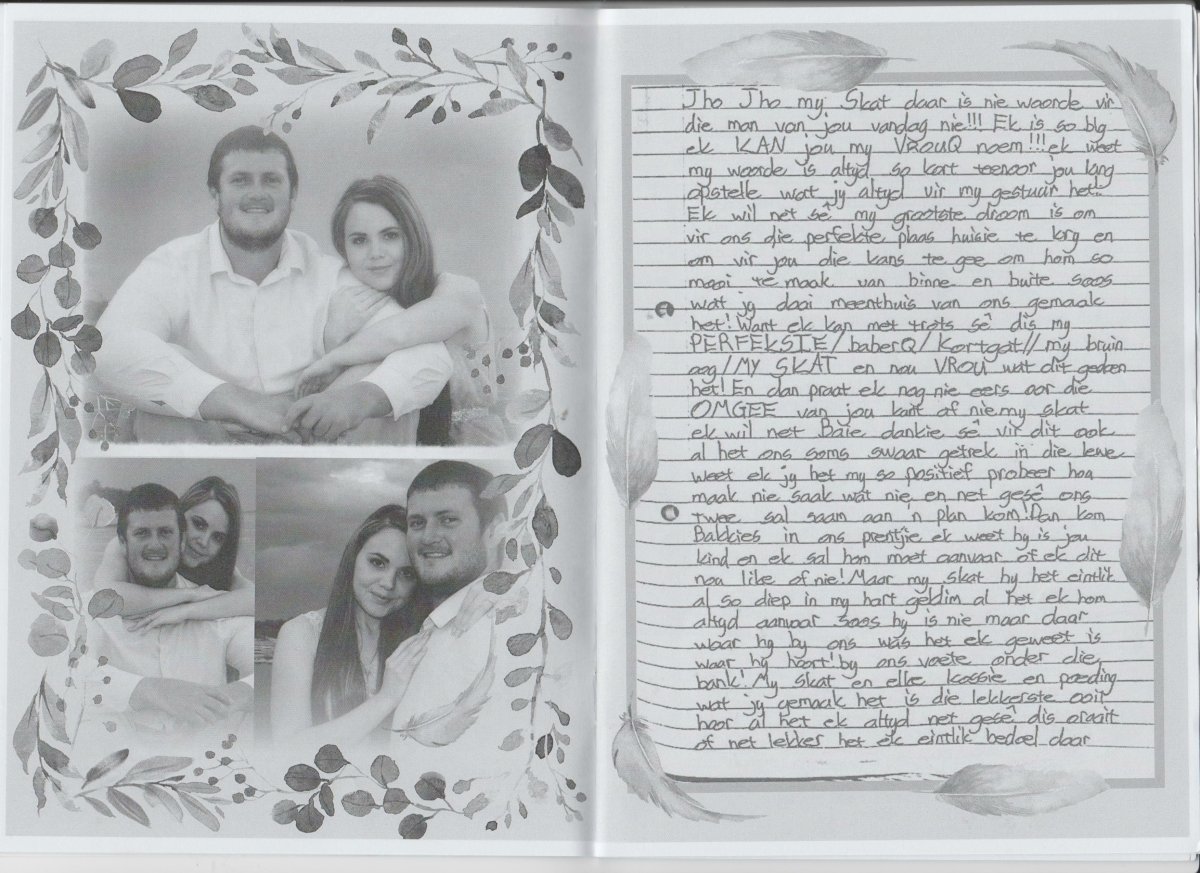 Jho Jho my Skat daar is nie woorde vir
die man van jou vandag nie!!! Ek is so bly
ek KAN jou my VROUQ noem!!!ek weet
my woorde is altyd so kort teenoor jou lang
opstelle wat jy altyd vir my gestuur het.
Ek wil net sê my grootste droom is om
vir ons die perfekte plaas huisie te kry en
om vir jou die kans te gee om hom so
mooi te maak van binne en buite soos
wat jy daai meenthuis van ons gemaak
het! Want ek kan met trots sê dis my
PERFEKSIE/baberQ/Kortgat//my bruin
oog/MY SKAT en nou VROU wat dit gedoen
het! En dan praat ek nog nie eers oor die
OMGEE van jou kant af nie my skat
ek wil net Baie dankie sê vir dit ook
al het ons soms swaar getrek in die lewe
weet ek jy het my so positief probeer hou
maak nie saak wat nie en net gesê ons
twee sal saam aan 'n plan kom! Dan kom
Bakkies in ons prentjie ek weet hy is jou
kind en ek sal hom moet aanvaar of ek dit
nou like of nie! Maar my skat hy het eintlik
al so diep in my hart geklim al het ek hom
altyd aanvaar soos hy is nie maar daar
waar hy by ons was het ek geweet is
waar hy hoort! by ons voete onder die
bank! My skat en elke kossie en poeding
wat jy gemaak het is die lekkerste ooit
hoor al het ek altyd net gesê dis oraait
of net lekker het ek eintlik bedoel daar